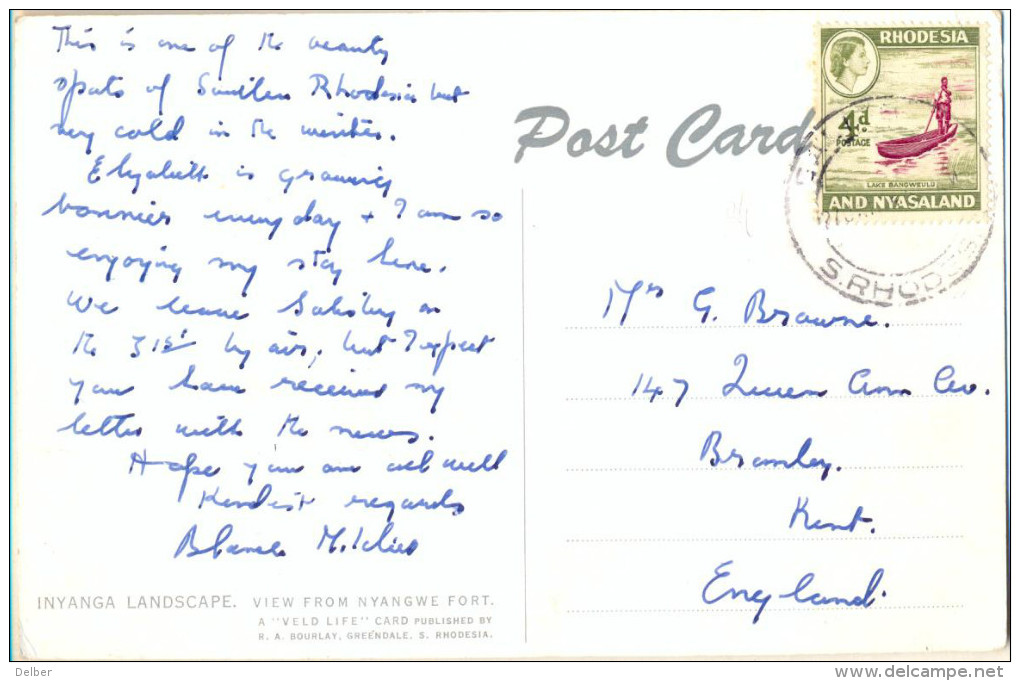 This is one of the beauty
spots of Southern Rhodesia but
very cold in the winter.
Elizabeth is growing
bonnier every day + I am so
enjoying my stay here.
We leave Salisbury on
the 31st by air, but I expect
you have received my
letter with the news.
Hope you are all well
Kindest regards
Blanche
INYANGA LANDSCAPE. VIEW FROM NYANGWE FORT.
A "VELD LIFE" CARD PUBLISHED BY
R. A. BOURLAY, GREENDALE, S. RHODESIA.
Post Card
RHODESIA
4d
POSTAGE
LAKE BANGWEULU
AND NYASALAND
S. RHODESIA
Mrs G. Browne.
147 Queen Ann Av.
Bromley.
Kent.
England.
Delber
delcampe.net